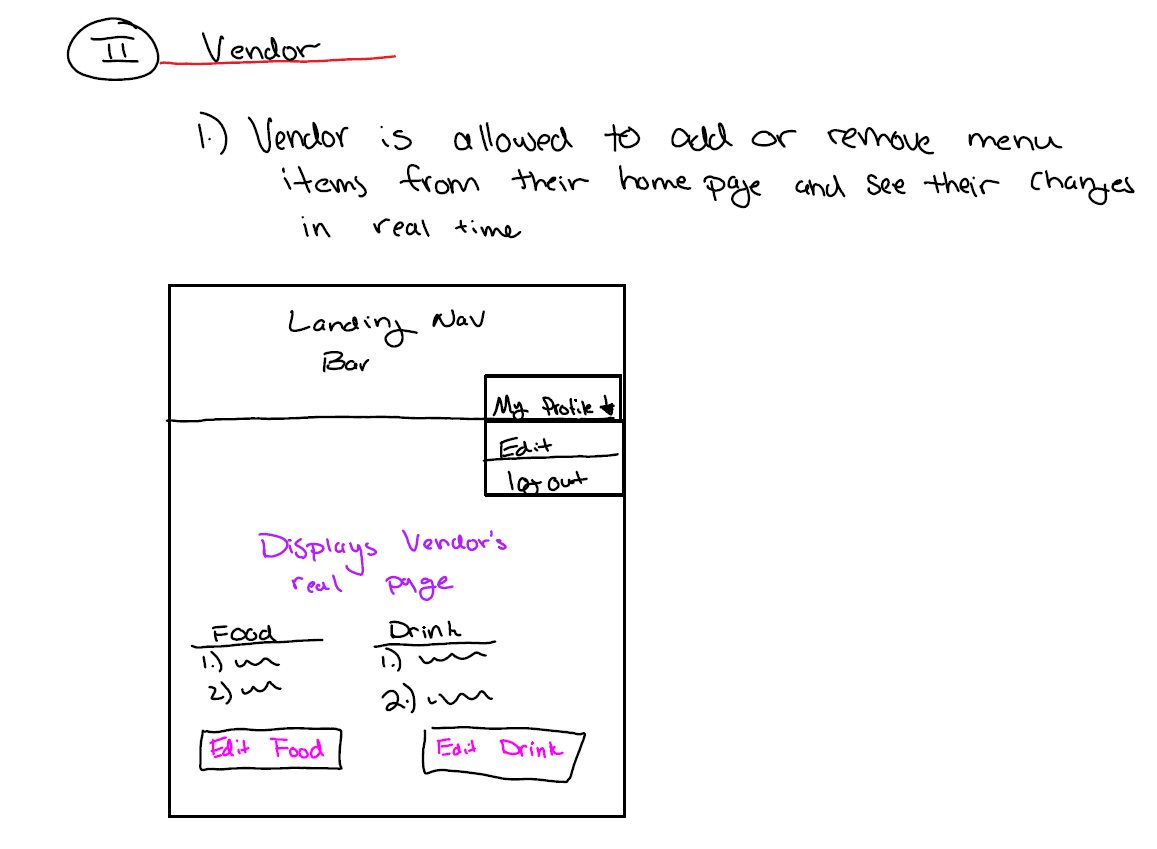 II Vendor
1.) Vendor is allowed to add or remove menu
items from their home page and see their changes
in real time
Landing Nav
Bar
My Profile
Edit
logout
Displays Vendor's
real page
Food Drink
1.) 1.)
2.) 2.)
Edit Food Edit Drink